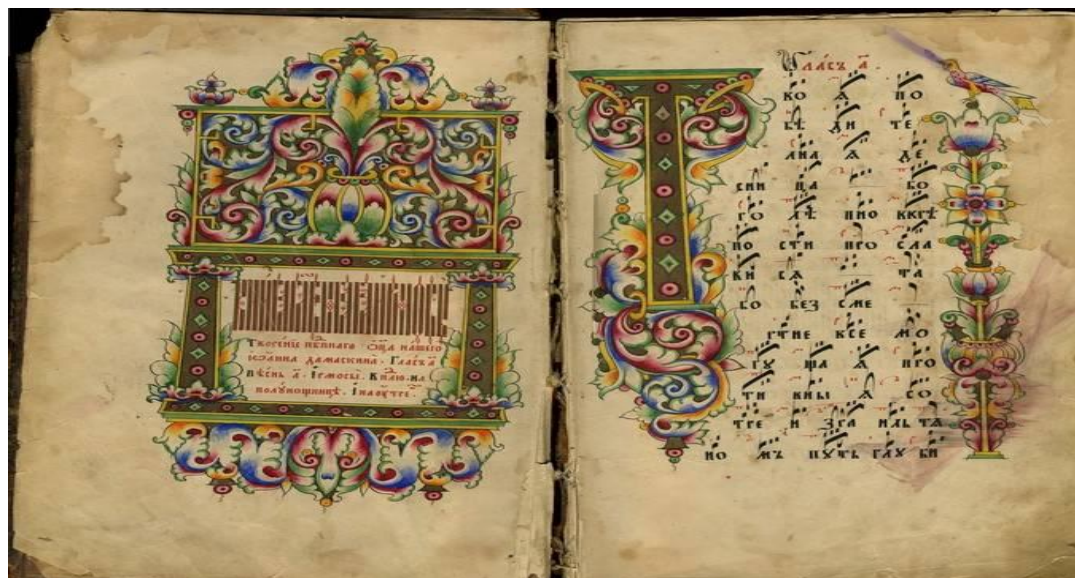 Творе́нїе пр҃пбнаго ѻ҆ц҃а на́шего
іѡа́нна дамаскина̀. Гла́съ а҃
пѣ́снь а҃. І҆рмосы̀. В нл҃ю. на
полꙋ́нощницѣ. І҆ на ѹ҆́тре.
Гла́съ а҃.
Т во ꙗ по
бѣ ди те
лна ꙗ де
сни ца бо
го лѣ пно в крѣ
по сти про сла
ви сѧ та
бо без сме
ртне все мо
гꙋ ща ꙗ про
ти вны ꙗ со
тре и зра иль тѧ
но мъ пꙋть глꙋ би